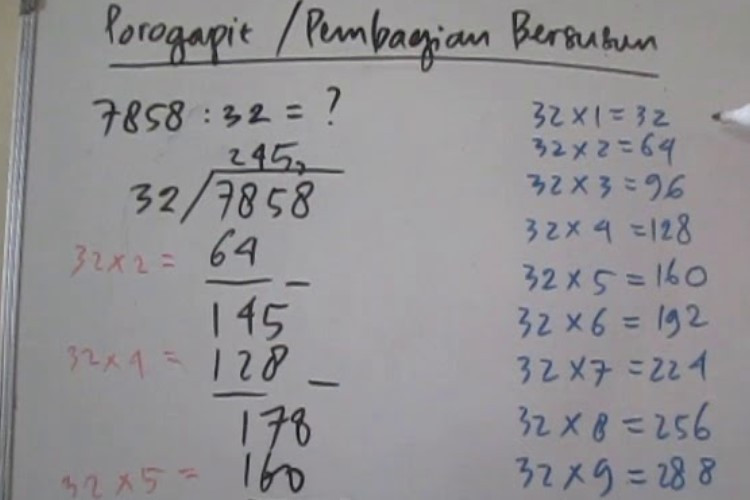 Porogapit / Pembagian Bersusun
7858 : 32 = ?
245,
32 / 7858
32 x 2 = 64
145
32 x 4 = 128
178
32 x 5 = 160
32 x 1 = 32
32 x 2 = 64
32 x 3 = 96
32 x 4 = 128
32 x 5 = 160
32 x 6 = 192
32 x 7 = 224
32 x 8 = 256
32 x 9 = 288